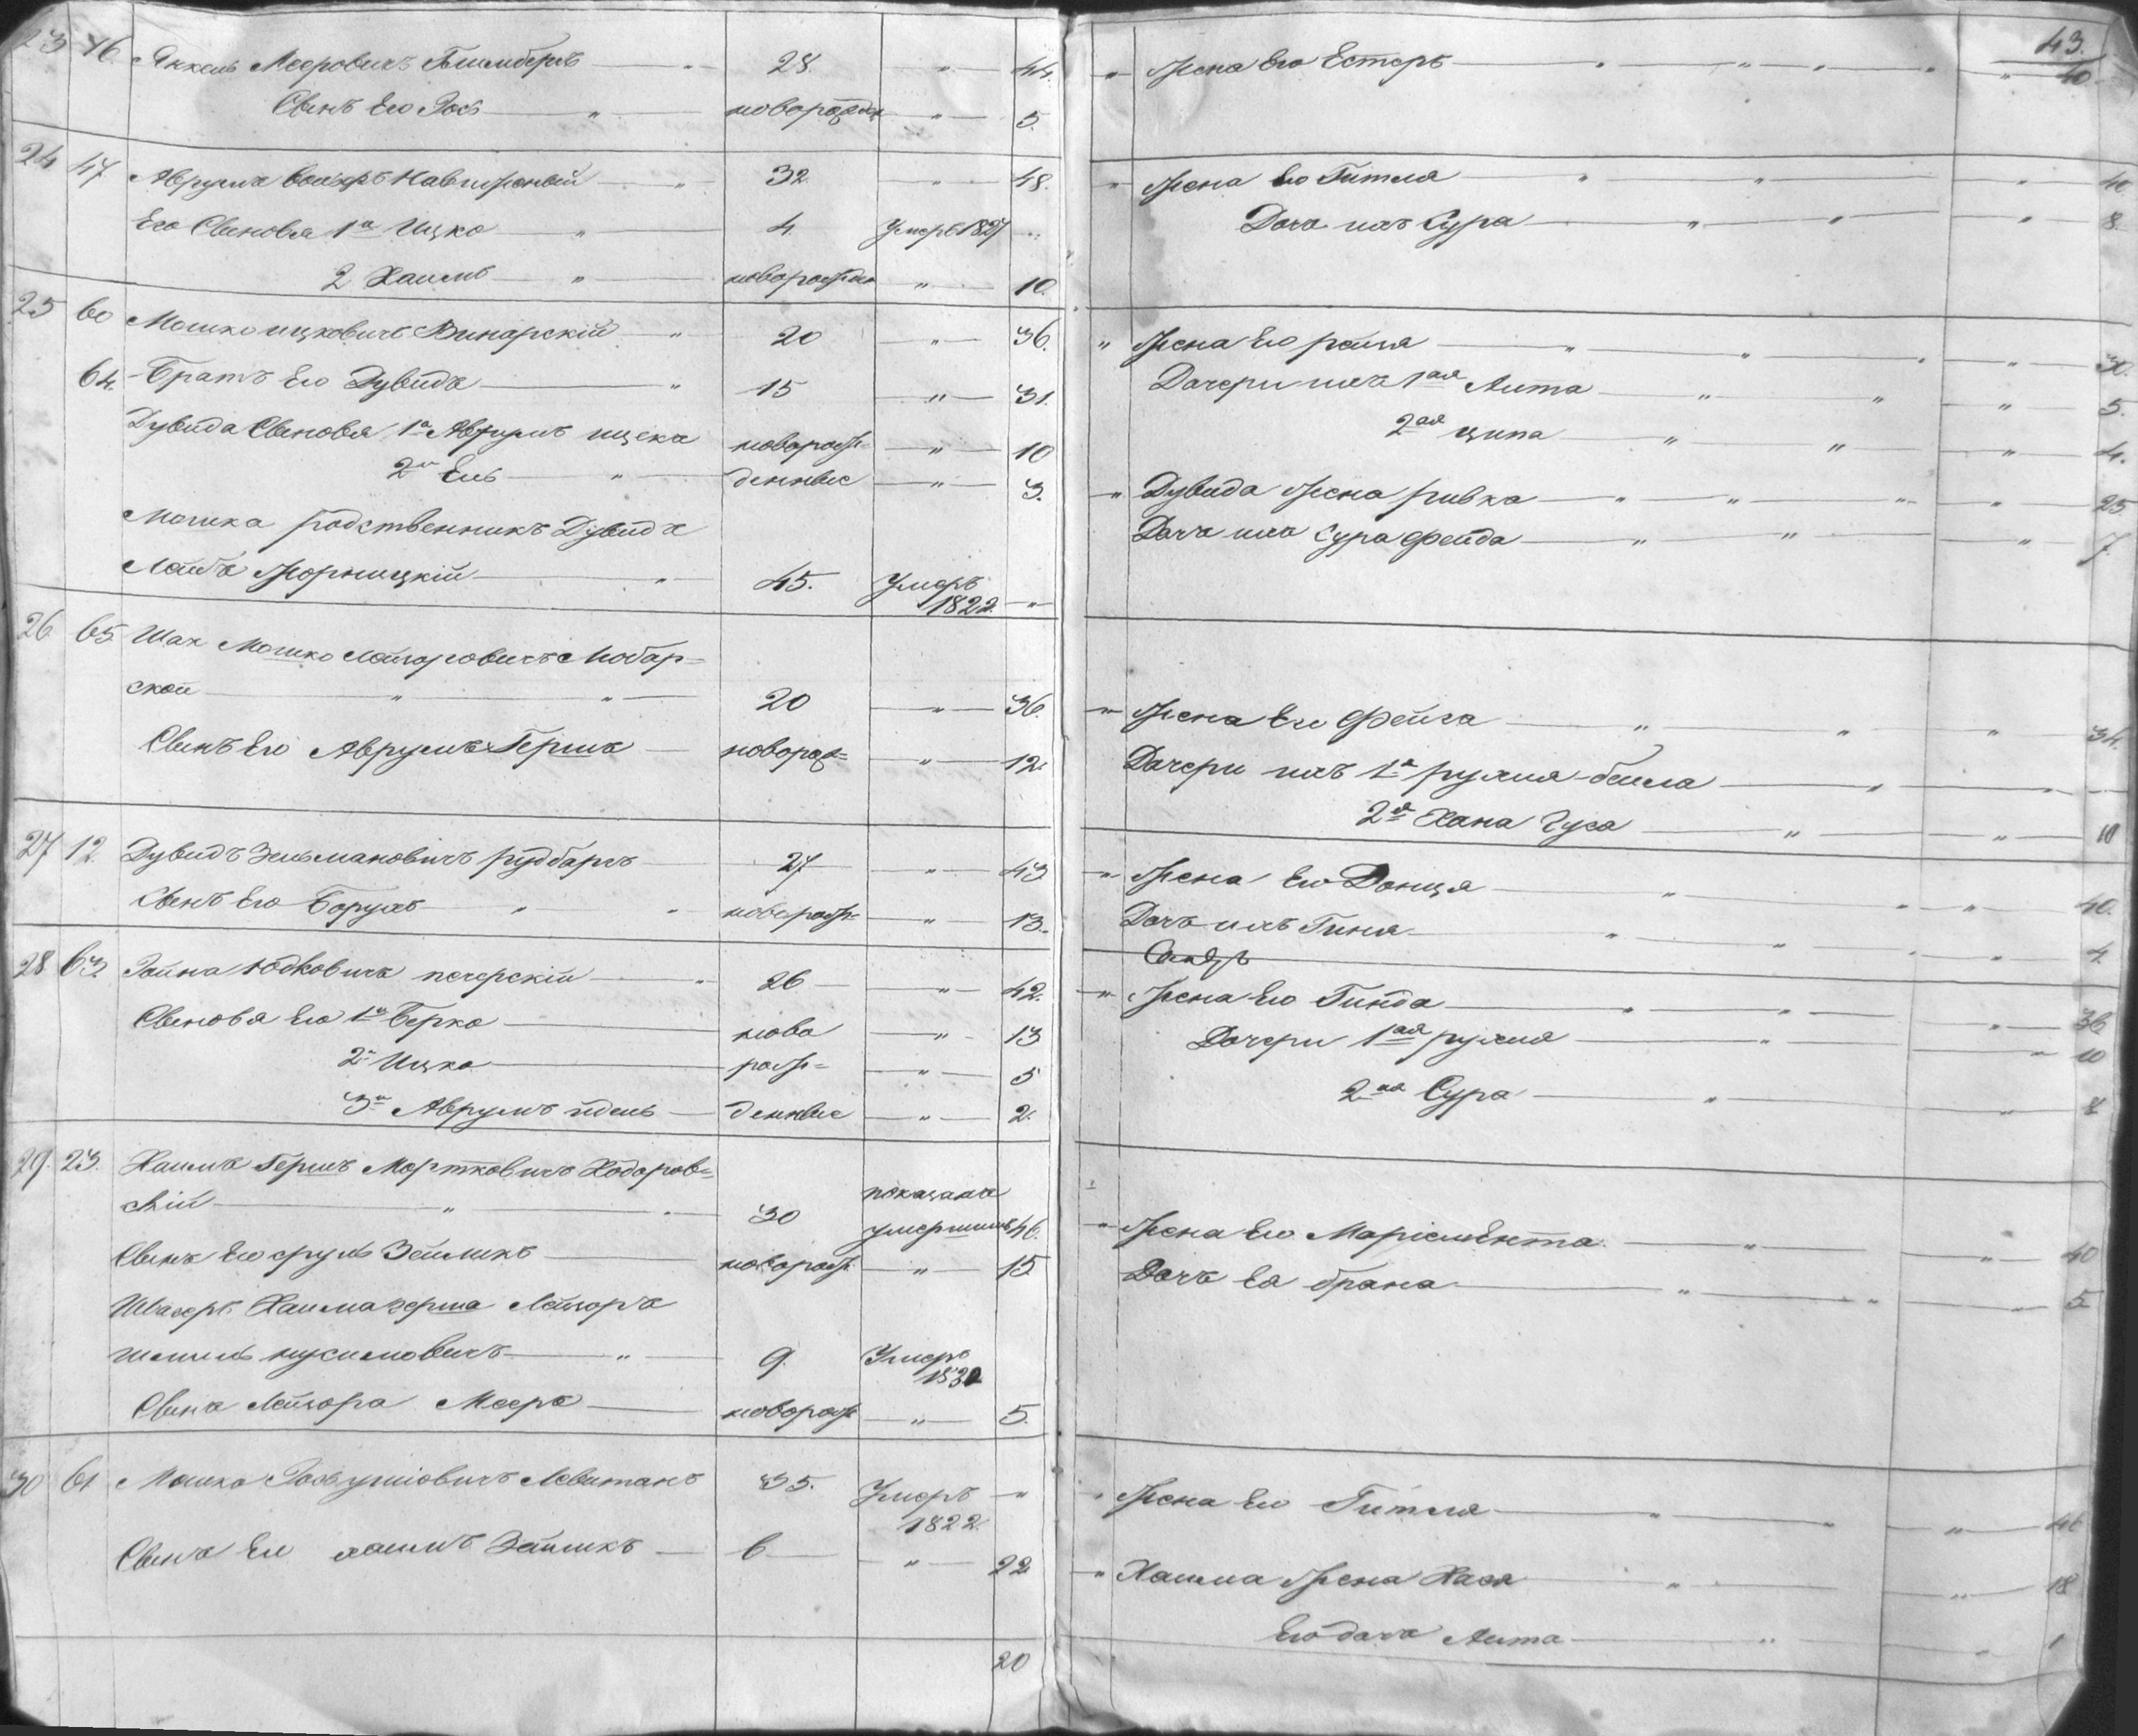 43.
23 46. Янкель Мееровичъ 28. " 44.
Сынъ Его новорожден " 5.
24 47 Аврумъ 32 " 48.
Его Сыновья 1й Ицко " 4 Умеръ 1827 "
2 Хаимъ " новорожден " 10.
25 60 Мошко ицковичъ Винарскій " 20 " 36.
64. Братъ Его Дувидъ " 15 " 31.
Дувида Сыновья 1й Аврумъ ицекъ новорож= " 10
2й Ель " денные " 3.
Мошка родственникъ Дувидъ
Лейбъ " 45. Умеръ
1822. "
26 65 Шая Мошко Лейзоровичъ
ской " " 20 " 36.
Сынъ Его Аврумъ Герша новорож= " 12.
27 12. Дувидъ Зельмановичъ 27 " 43
Сынъ Его Борухъ " " новорож= " 13.
28 63. Юдковичъ печерскій " 26 " 42.
Сыновья Его 1й Берко ново " 13
2й Ицко рож= " 5
3й Аврумъ идель денные " 2.
29. 23. Хаимъ Гершъ Мортковичъ Ходоров=
скій " " 30 показанъ
умершимъ 46.
Сынъ Его сруль Зейликъ новорож. " 15
Швагеръ Хаима герша Лейзоръ
шмиль нусимовичъ " 9. Умеръ
1832
Сынъ Лейзора Мееръ новорож " 5.
30 61 Мошко Левитанъ 35. Умеръ "
1822.
Сынъ Его хаимъ Зейликъ 6 " 22
20
" Жена Его Естеръ " " " " " 40
" Жена Его Гитля " " " 40
Дочь ихъ Сура " " " 8.
" Жена Его рейзя " " " " 30.
Дочери ихъ 1ая Аита " " " 5.
2ая ципа " " " 4.
" Дувида Жена ривка " " " " 25
Дочь ихъ Сура фейда " " " 7
" Жена Его Фейга " " " 34.
Дочери ихъ 1я рухля-бейла " "
2я Хана " " 10
" Жена Его " " " 40.
Дочь ихъ Гиня " " " " 4
" Жена Его Гинда " " " 36
Дочери 1ая рухля " " 10
2ая Сура " " 8
" Жена Его " " 40
Дочь Ея брана " " " 5
" Жена Его Гитля " " " 46
" Хаима Жена Хася " " 18
Его дочь Аита " " 1